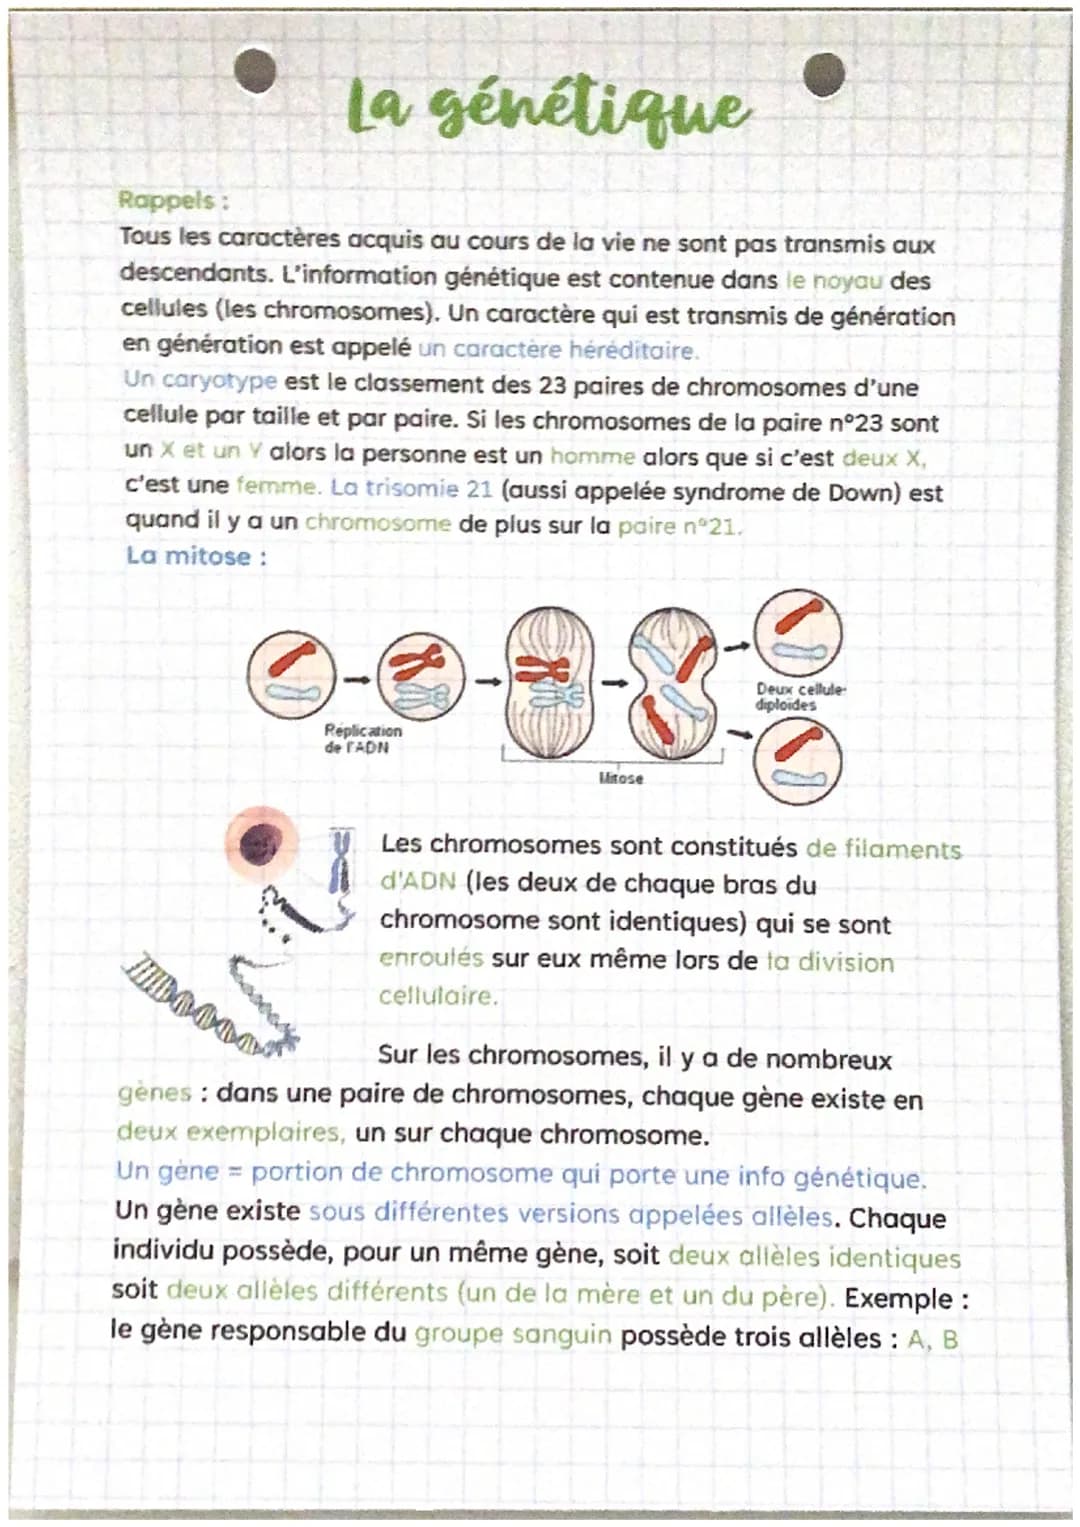 La génétique
Rappels :
Tous les caractères acquis au cours de la vie ne sont pas transmis aux
descendants. L'information génétique est contenue dans le noyau des
cellules (les chromosomes). Un caractère qui est transmis de génération
en génération est appelé un caractère héréditaire.
Un caryotype est le classement des 23 paires de chromosomes d'une
cellule par taille et par paire. Si les chromosomes de la paire n°23 sont
un X et un Y alors la personne est un homme alors que si c'est deux X,
c'est une femme. La trisomie 21 (aussi appelée syndrome de Down) est
quand il y a un chromosome de plus sur la paire n°21.
La mitose :
Réplication
de l'ADN
Mitose
Deux cellule
diploïdes
Les chromosomes sont constitués de filaments
d'ADN (les deux de chaque bras du
chromosome sont identiques) qui se sont
enroulés sur eux même lors de la division
cellulaire.
Sur les chromosomes, il y a de nombreux
gènes : dans une paire de chromosomes, chaque gène existe en
deux exemplaires, un sur chaque chromosome.
Un gène = portion de chromosome qui porte une info génétique.
Un gène existe sous différentes versions appelées allèles. Chaque
individu possède, pour un même gène, soit deux allèles identiques
soit deux allèles différents (un de la mère et un du père). Exemple :
le gène responsable du groupe sanguin possède trois allèles : A, B